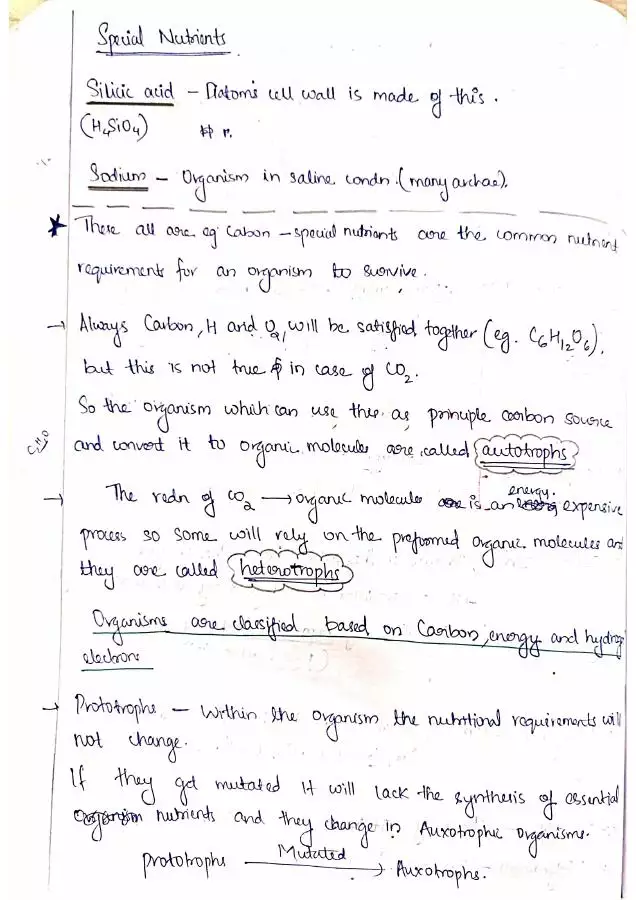 Special Nutrients
Silicic acid – Diatom's cell wall is made of this.
(H4SiO4)
Sodium – Organism in saline condn. (many archae).
★ These all are eg Cabon – special nutrients are the common nutrient
requirements for an organism to survive.
→ Always Carbon, H and O2, will be satisfied together (eg. C6H12O6),
but this is not true in case of CO2.
So the organism which can use this as principle carbon source
and convert it to organic molecules are called autotrophs
→ The redn of CO2 → organic molecule is an energy. expensive
process so some will rely on the preformed organic molecules and
they are called heterotrophs
Organisms are classified based on Carbon, energy and hydrog
electrons
→ Prototrophs – Within the organism the nutritional requirements will
not change.
If they get mutated it will lack the synthesis of essential
nutrients and they change in Auxotrophic organisms.
Prototrophs Mutated → Auxotrophs.